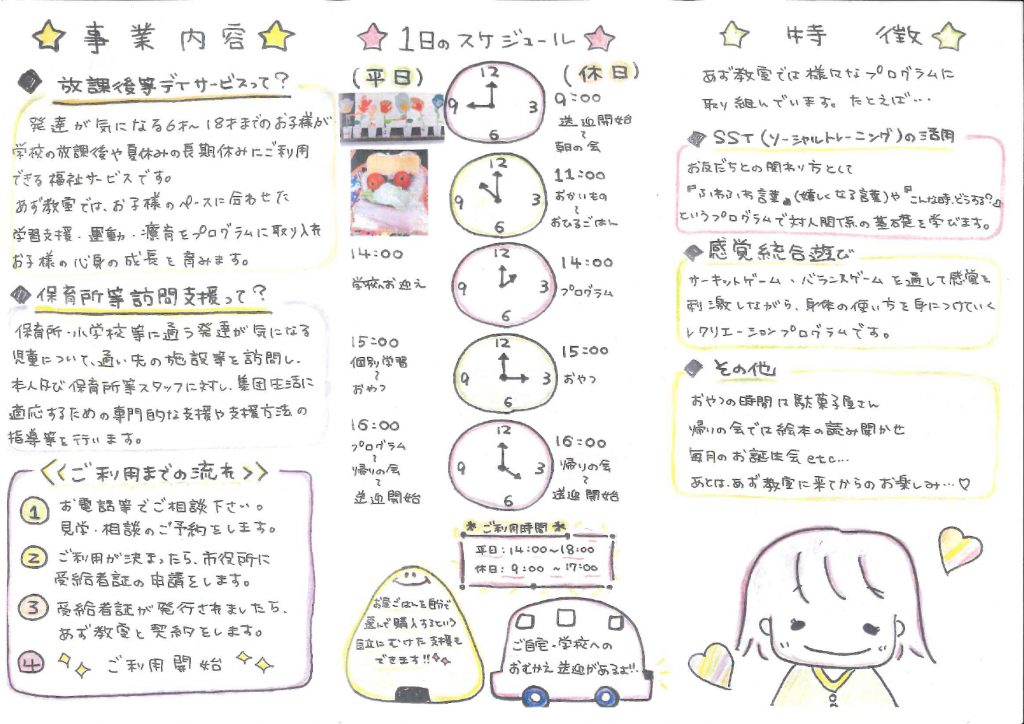 事業内容
放課後等デイサービスって?
発達が気になる6才~18才までのお子様が
学校の放課後や夏休みの長期休みにご利用
できる福祉サービスです。
あず教室では、お子様のペースに合わせた
学習支援・運動・療育をプログラムに取り入れ
お子様の心身の成長を育みます。
保育所等訪問支援って?
保育所・小学校等に通う発達が気になる
児童について、通い先の施設等を訪問し、
本人及び保育所等スタッフに対し、集団生活に
適応するための専門的な支援や支援方法の
指導等を行います。
<<ご利用までの流れ>>
1 お電話等でご相談下さい。
見学・相談のご予約をします。
2 ご利用が決まったら、市役所に
受給者証の申請をします。
3 受給者証が発行されましたら、
あず教室と契約をします。
4 ご利用開始
1日のスケジュール
(平日)
(休日)
12
3
6
9
9:00
送迎開始
~
朝の会
12
3
6
9
11:00
おかいもの
~
おひるごはん
14:00
学校へお迎え
12
3
6
9
14:00
プログラム
15:00
個別学習
~
おやつ
12
3
6
9
15:00
おやつ
16:00
プログラム
~
帰りの会
~
送迎開始
12
3
6
9
16:00
帰りの会
~
送迎開始
ご利用時間
平日:14:00~18:00
休日:9:00~17:00
お昼ごはんを自分で
選んで購入するという
自立にむけた支援も
できます!!
ご自宅・学校への
おむかえ送迎があるよ!!…
特徴
あず教室では様々なプログラムに
取り組んでいます。たとえば…
SST(ソーシャルトレーニング)の活用
お友だちとの関わり方として
『ふわふわ言葉』(嬉しくなる言葉)や『こんな時、どうする?』
というプログラムで対人関係の基礎を学びます。
感覚統合遊び
サーキットゲーム・バランスゲームを通して感覚を
刺激しながら、身体の使い方を身につけていく
レクリエーションプログラムです。
その他
おやつの時間は駄菓子屋さん
帰りの会では絵本の読み聞かせ
毎月のお誕生会etc…
あとは、あず教室に来てからのお楽しみ…♡